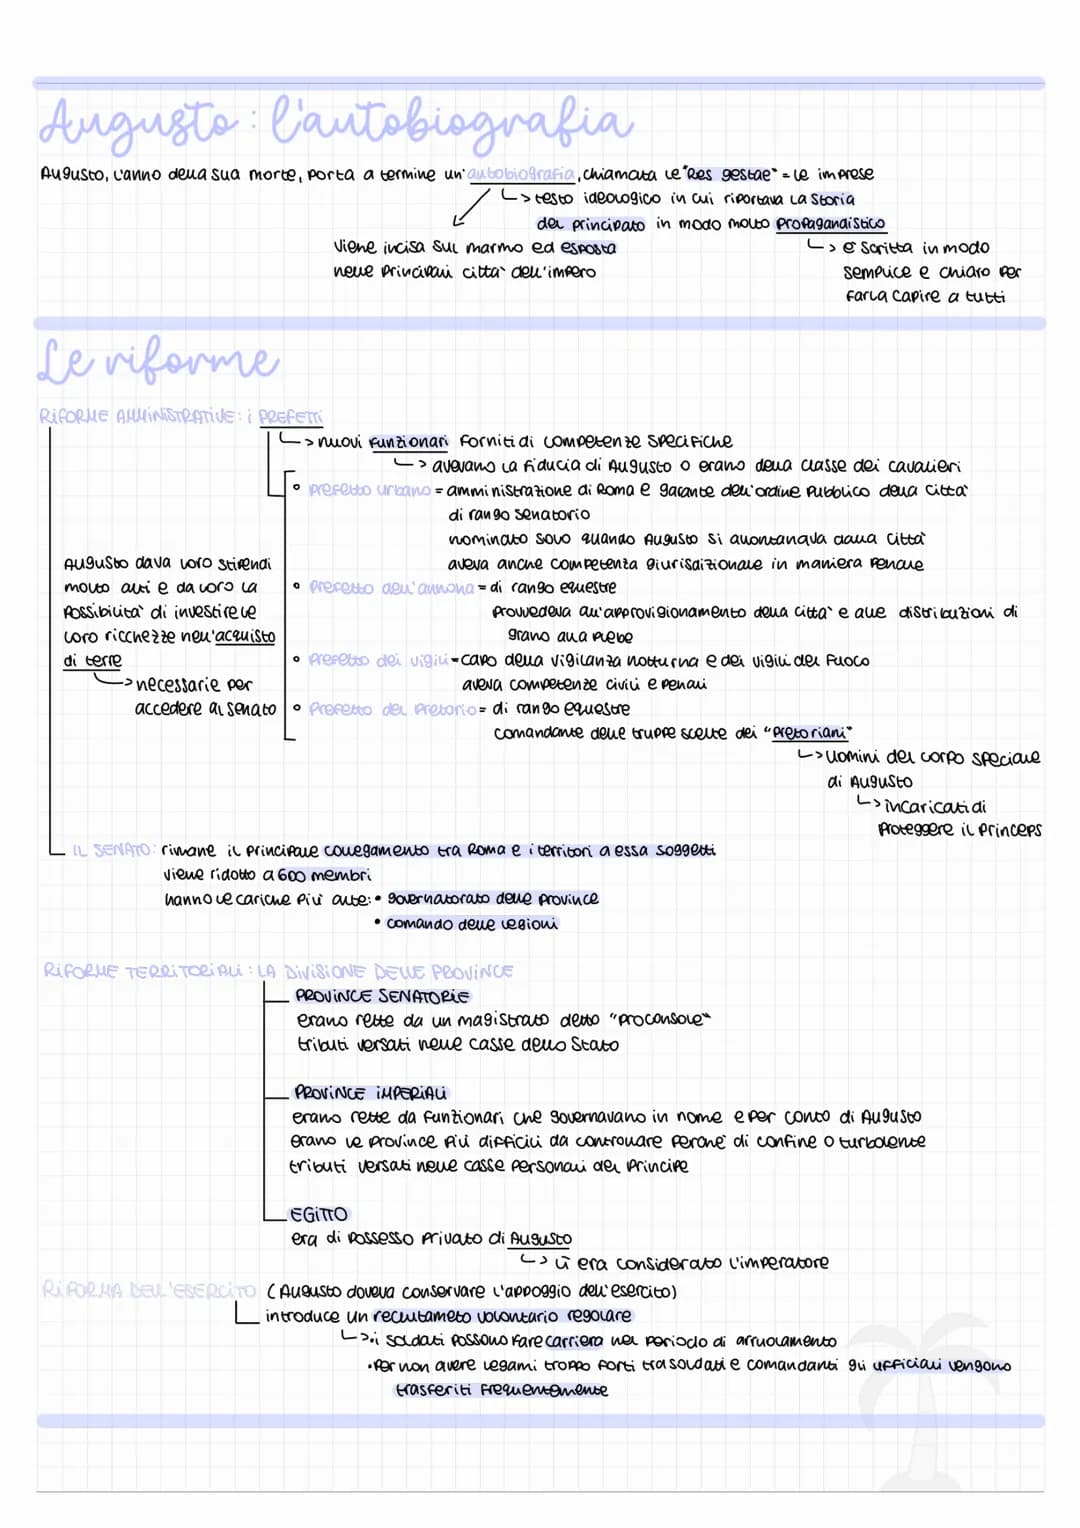 Augusto: l'autobiografia
Augusto, l'anno della sua morte, porta a termine un'autobiografia, chiamata le "Res gestae" = le imprese
↳ testo ideologico in cui riportava la storia
del principato in modo molto propagandistico
viene incisa sul marmo ed esposta
nelle principali città dell'impero
↳ è scritta in modo
semplice e chiaro per
farla capire a tutti
Le riforme
RIFORME AMMINISTRATIVE: i PREFETTI
↳ nuovi funzionari forniti di competenze specifiche
↳ avevano la fiducia di Augusto o erano della classe dei cavalieri
• prefetto urbano = amministrazione di Roma e garante dell'ordine pubblico della città
di rango senatorio
nominato solo quando Augusto si allontanava dalla città
aveva anche competenza giurisdizionale in maniera penale
Augusto dava loro stipendi
molto alti e da loro la
possibilità di investire le
loro ricchezze nell'acquisto
di terre
↳ necessarie per
accedere al senato
• Prefetto dell'annona = di rango equestre
provvedeva all'approvigionamento della città e alle distribuzioni di
grano alla plebe
• Prefetto dei vigili = capo della vigilanza notturna e dei vigili del fuoco
aveva competenze civili e penali
• Prefetto del Pretorio = di rango equestre
comandante delle truppe scelte dei "Pretoriani"
↳ uomini del corpo speciale
di Augusto
↳ incaricati di
proteggere il princeps
IL SENATO: rimane il principale collegamento tra Roma e i territori a essa soggetti
viene ridotto a 600 membri
hanno le cariche più alte: • governatorato delle province
• comando delle legioni
RIFORME TERRITORIALI: LA DIVISIONE DELLE PROVINCE
PROVINCE SENATORIE
erano rette da un magistrato detto "proconsole"
tributi versati nelle casse dello Stato
PROVINCE IMPERIALI
erano rette da funzionari che governavano in nome e per conto di Augusto
erano le province più difficili da controllare perché di confine o turbolente
tributi versati nelle casse personali del Principe
EGITTO
era di possesso privato di Augusto
↳ lì era considerato l'imperatore
RIFORMA DELL'ESERCITO (Augusto doveva conservare l'appoggio dell'esercito)
introduce un reclutameto volontario regolare
↳ • i soldati possono fare carriera nel periodo di arruolamento
• Per non avere legami troppo forti tra soldati e comandanti gli ufficiali vengono
trasferiti frequentemente